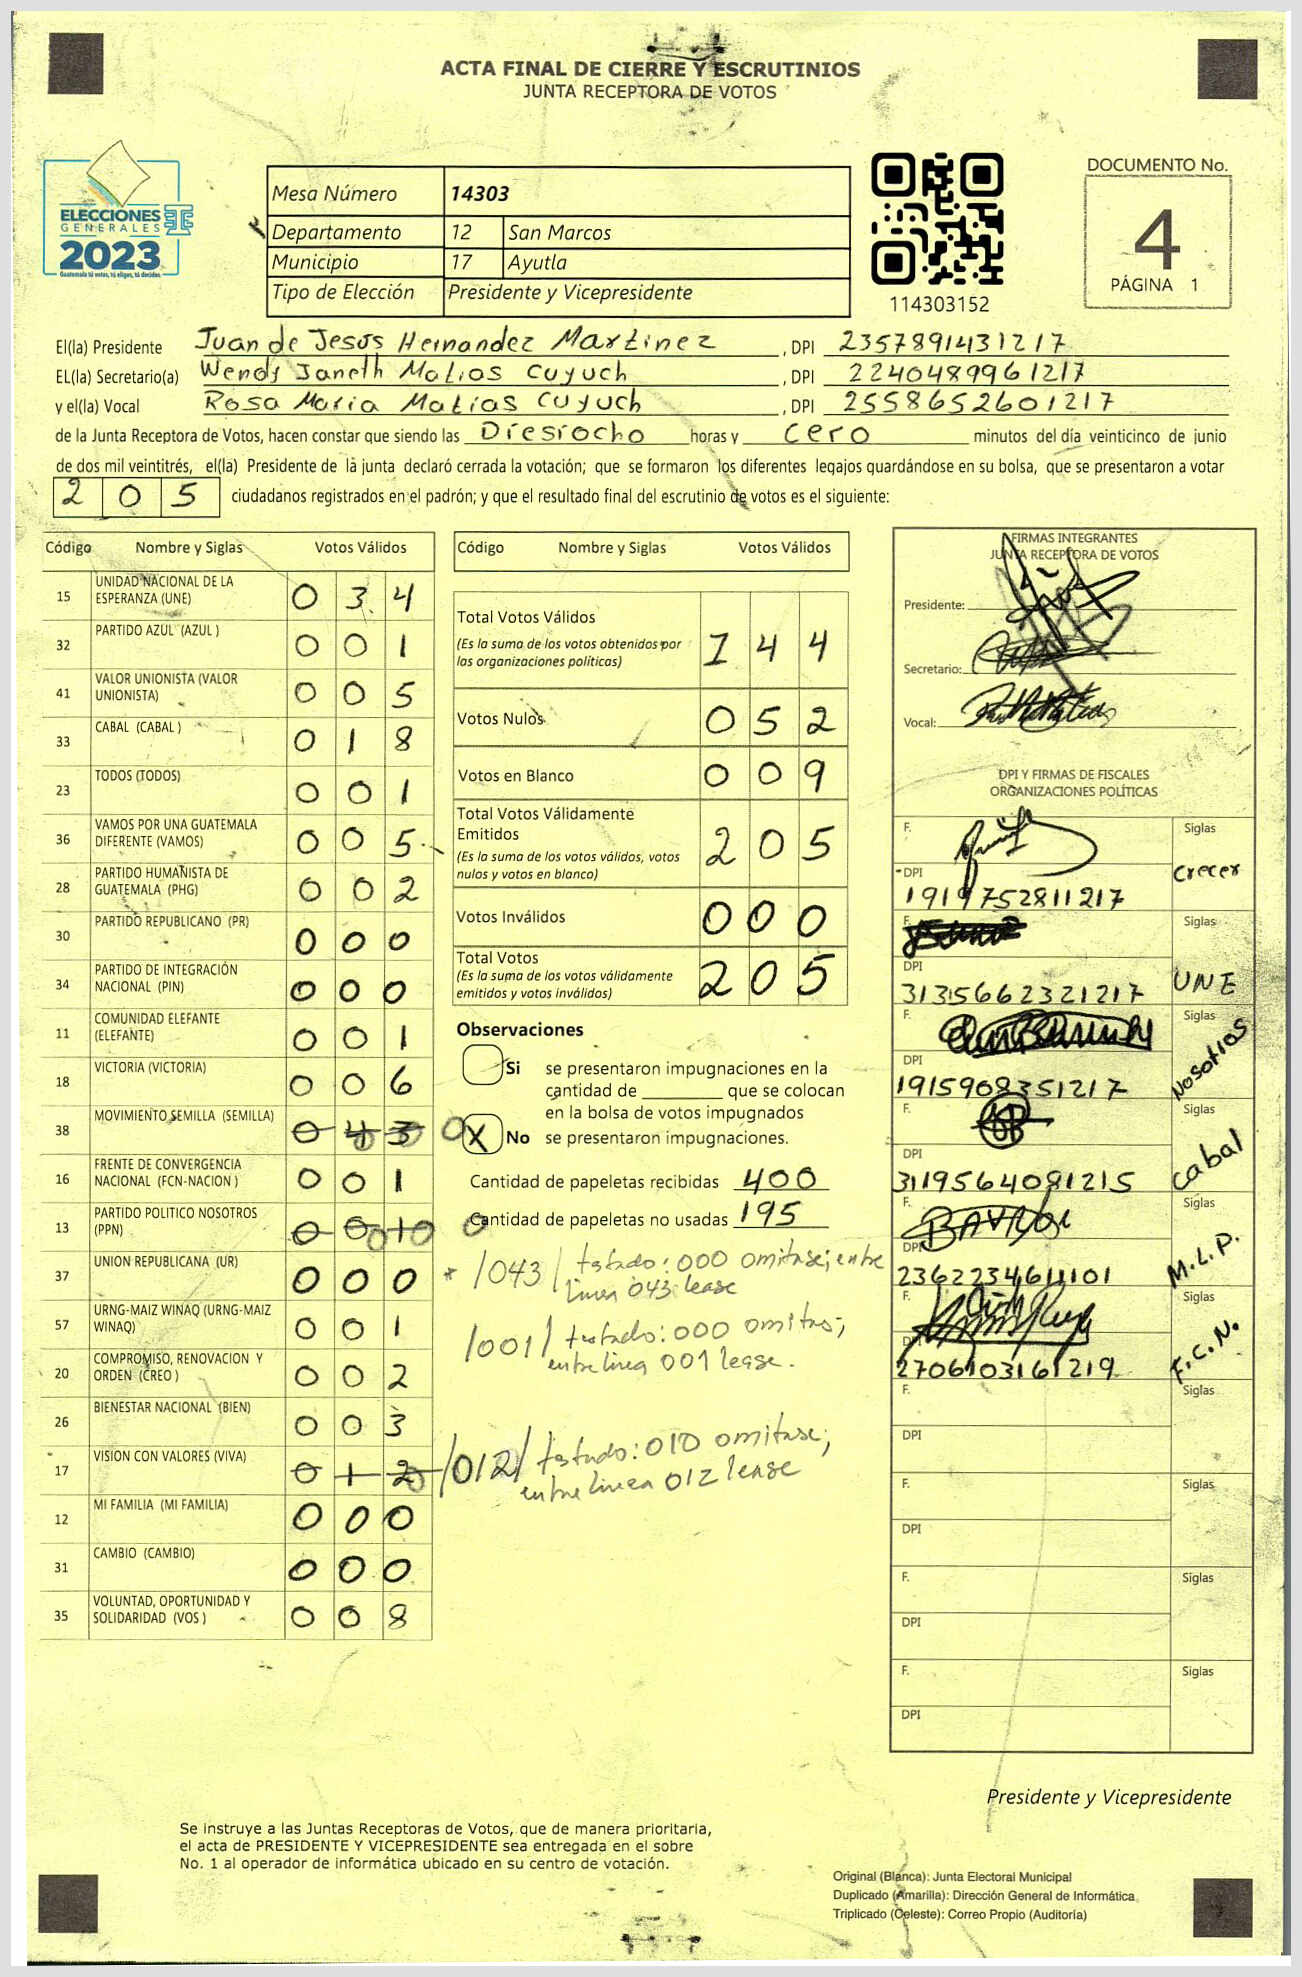 ACTA FINAL DE CIERRE Y ESCRUTINIOS
JUNTA RECEPTORA DE VOTOS
ELECCIONES
GENERALES
2023
Guatemala tú votas, tú eliges, tú decides
Mesa Número 14303
Departamento 12 San Marcos
Municipio 17 Ayutla
Tipo de Elección Presidente y Vicepresidente
114303152
DOCUMENTO No.
4
PÁGINA 1
El(la) Presidente Juan de Jesús Hernandez Martinez , DPI 2357891431217
EL(la) Secretario(a) Wendy Janeth Matias Cuyuch , DPI 2240489961217
y el(la) Vocal Rosa Maria Matias Cuyuch , DPI 2558652601217
de la Junta Receptora de Votos, hacen constar que siendo las Diesiocho horas y cero minutos del día veinticinco de junio
de dos mil veintitrés, el(la) Presidente de la junta declaró cerrada la votación; que se formaron los diferentes legajos guardándose en su bolsa, que se presentaron a votar
205 ciudadanos registrados en el padrón; y que el resultado final del escrutinio de votos es el siguiente:
Código Nombre y Siglas Votos Válidos
15 UNIDAD NACIONAL DE LA ESPERANZA (UNE) 0 3 4
32 PARTIDO AZUL (AZUL ) 0 0 1
41 VALOR UNIONISTA (VALOR UNIONISTA) 0 0 5
33 CABAL (CABAL ) 0 1 8
23 TODOS (TODOS) 0 0 1
36 VAMOS POR UNA GUATEMALA DIFERENTE (VAMOS) 0 0 5
28 PARTIDO HUMANISTA DE GUATEMALA (PHG) 0 0 2
30 PARTIDO REPUBLICANO (PR) 0 0 0
34 PARTIDO DE INTEGRACIÓN NACIONAL (PIN) 0 0 0
11 COMUNIDAD ELEFANTE (ELEFANTE) 0 0 1
18 VICTORIA (VICTORIA) 0 0 6
38 MOVIMIENTO SEMILLA (SEMILLA) 0 4 3
16 FRENTE DE CONVERGENCIA NACIONAL (FCN-NACION ) 0 0 1
13 PARTIDO POLITICO NOSOTROS (PPN) 0 0 1
37 UNION REPUBLICANA (UR) 0 0 0
57 URNG-MAIZ WINAQ (URNG-MAIZ WINAQ) 0 0 1
20 COMPROMISO, RENOVACION Y ORDEN (CREO ) 0 0 2
26 BIENESTAR NACIONAL (BIEN) 0 0 3
17 VISION CON VALORES (VIVA) 0 1 2
12 MI FAMILIA (MI FAMILIA) 0 0 0
31 CAMBIO (CAMBIO) 0 0 0
35 VOLUNTAD, OPORTUNIDAD Y SOLIDARIDAD (VOS ) 0 0 8
Código Nombre y Siglas Votos Válidos
Total Votos Válidos 1 4 4
(Es la suma de los votos obtenidos por
las organizaciones políticas)
Votos Nulos 0 5 2
Votos en Blanco 0 0 9
Total Votos Válidamente
Emitidos 2 0 5
(Es la suma de los votos válidos, votos
nulos y votos en blanco)
Votos Inválidos 0 0 0
Total Votos 2 0 5
(Es la suma de los votos válidamente
emitidos y votos inválidos)
Observaciones
Si se presentaron impugnaciones en la
cantidad de ________ que se colocan
en la bolsa de votos impugnados
X No se presentaron impugnaciones.
Cantidad de papeletas recibidas 400
Cantidad de papeletas no usadas 195
* /043/ testado: 000 omitase; entre
linea 043 lease
/001/ testado: 000 omitas;
entre linea 001 lease.
/012/ testado: 010 omitase;
entre linea 012 lease
FIRMAS INTEGRANTES
JUNTA RECEPTORA DE VOTOS
Presidente:
Secretario:
Vocal:
DPI Y FIRMAS DE FISCALES
ORGANIZACIONES POLÍTICAS
F. Siglas
DPI crecer
1919752811217
F. Siglas
DPI UNE
3135662321217
F. Siglas
DPI Nosotros
1915908351217
F. Siglas
DPI cabal
3119564081215
F. Siglas
DPI M.L.P.
2362234611101
F. Siglas
DPI F.C.N.
2706103161219
F. Siglas
DPI
F. Siglas
DPI
F. Siglas
DPI
F. Siglas
DPI
Presidente y Vicepresidente
Se instruye a las Juntas Receptoras de Votos, que de manera prioritaria,
el acta de PRESIDENTE Y VICEPRESIDENTE sea entregada en el sobre
No. 1 al operador de informática ubicado en su centro de votación.
Original (Blanca): Junta Electoral Municipal
Duplicado (Amarilla): Dirección General de Informática
Triplicado (Celeste): Correo Propio (Auditoría)